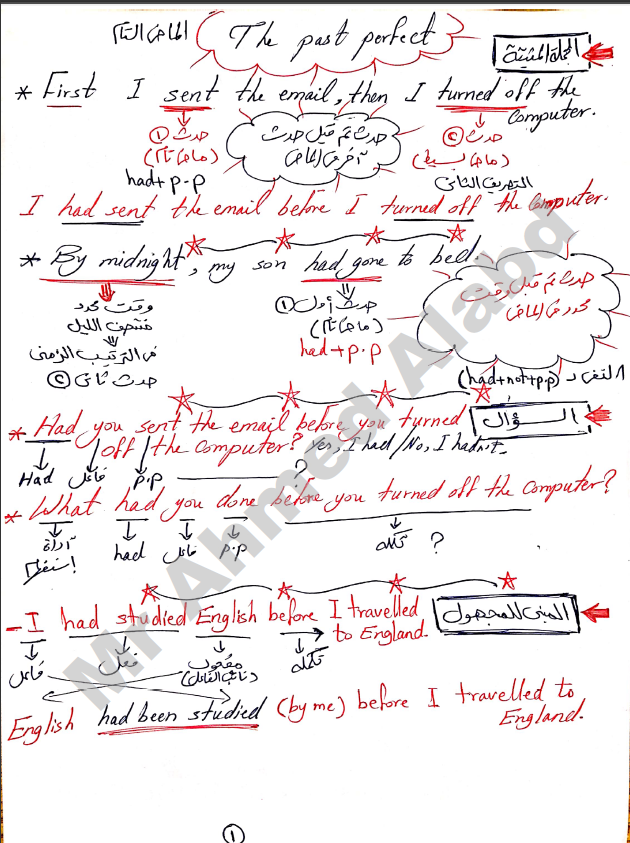 الماضى التام
The past perfect
الجملة المثبتة
* First I sent the email, then I turned off the
Computer.
حدث ①
(ماضى تام)
had + p.p
حدث تم قبل حدث
آخر فى الماضى
حدث ②
(ماضى بسيط)
التصريف الثانى
I had sent the email before I turned off the Computer.
* By midnight, my son had gone to bed.
وقت محدد
منتصف الليل
فى الترتيب الزمنى
حدث ثانى ②
حدث أول ①
(ماضى تام)
had + p.p
حدث تم قبل وقت
محدد فى الماضى
النفى د (had+not+p.p)
السؤال
* Had you sent the email before you turned
off the Computer? Yes, I had / No, I hadn't
Had فاعل p.p ?
* What had you done before you turned off the Computer?
أداة
استفهام
had فاعل p.p تكملة ?
المبنى للمجهول
- I had studied English before I travelled
to England.
فاعل فعل مفعول تكملة
(نائب الفاعل)
English had been studied (by me) before I travelled to
England.
①
Mr Ahmed Alabd